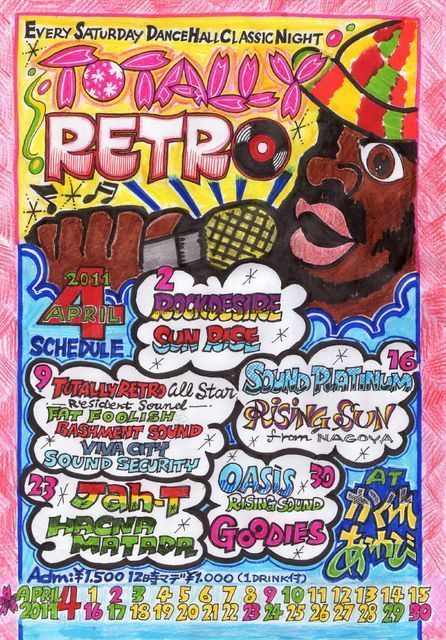 EVERY SATURDAY DANCEHALL CLASSIC NIGHT
TOTALLY
RETRO
2011
4
APRIL
SCHEDULE
2
ROCKDESIRE
SUN RISE
9
TOTALLY RETRO All Star
Resident Sound
FAT FOOLISH
BASHMENT SOUND
VIVA CITY
SOUND SECURITY
16
SOUND PLATINUM
RISING SUN
from NAGOYA
23
Jah-T
HACNA
MATADA
30
OASIS
RISING SOUND
GOODIES
AT
かくれ
あそび
Adm:¥1.500 12時マデ¥1.000 (1DRINK付)
APRIL 4 1 2 3 4 5 6 7 8 9 10 11 12 13 14 15
2011 16 17 18 19 20 21 22 23 24 25 26 27 28 29 30